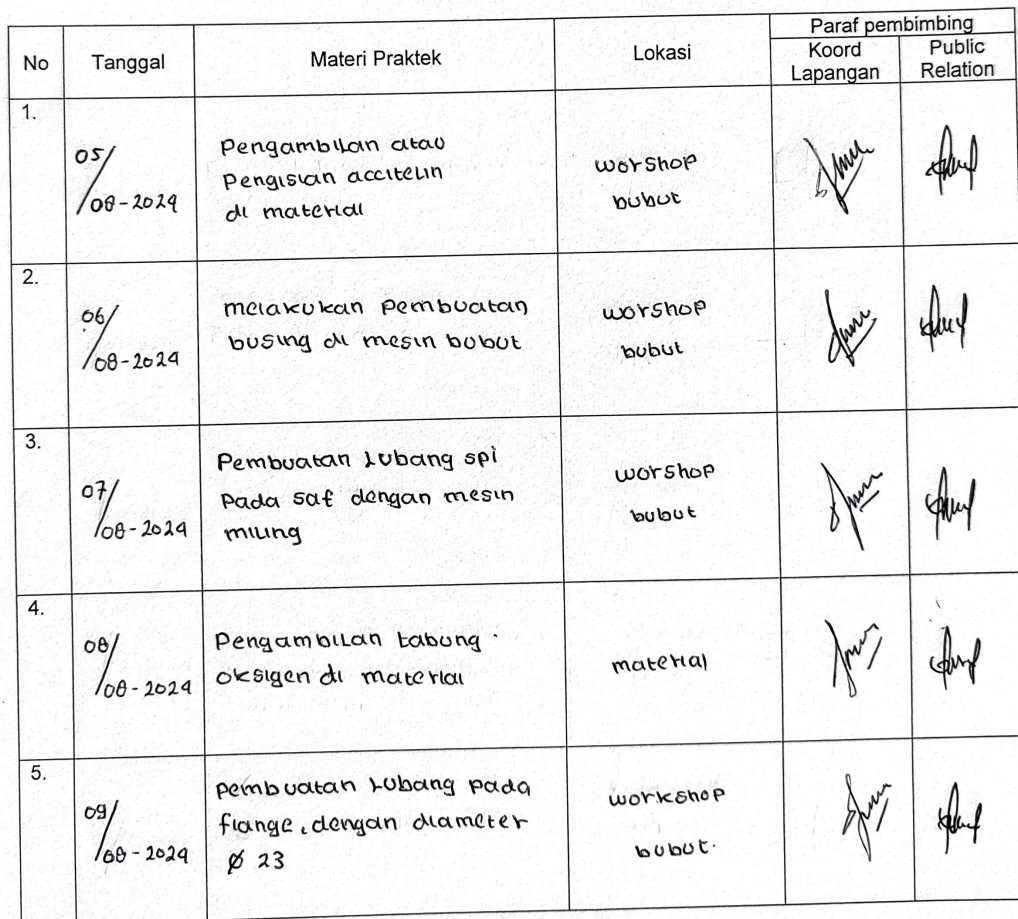 No Tanggal Materi Praktek Lokasi Paraf pembimbing
Koord Lapangan Public Relation
1.
05/08-2024
Pengambilan atau
Pengisian accitelin
di material
worshop
bubut
2.
06/08-2024
melakukan Pembuatan
busing di mesin bubut
worshop
bubut
3.
07/08-2024
Pembuatan Lubang spi
Pada saf dengan mesin
miling
worshop
bubut
4.
08/08-2024
Pengambilan tabung
oksigen di material
material
5.
09/08-2024
Pembuatan Lubang pada
flange, dengan diameter
Ø 23
workshop
bubut.